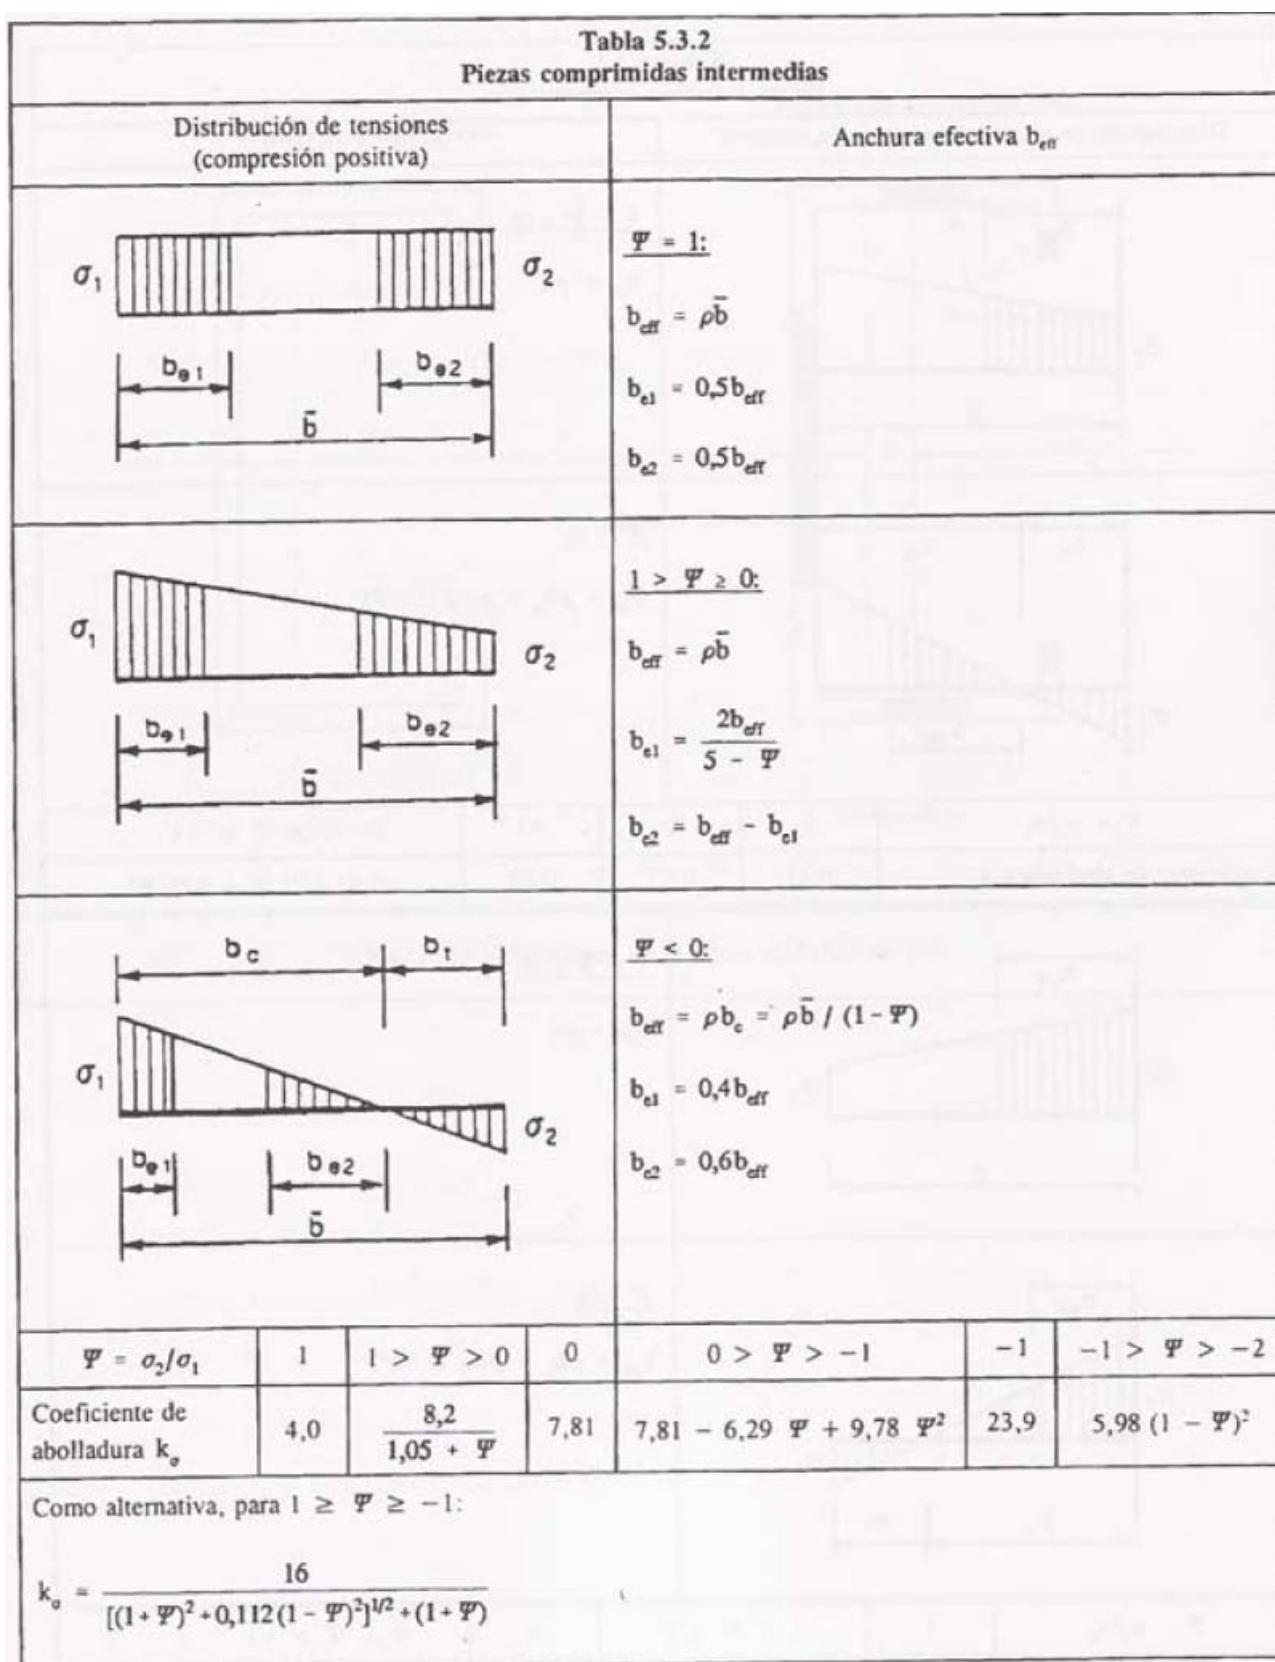 Tabla 5.3.2
Piezas comprimidas intermedias
Distribución de tensiones
(compresión positiva)
Anchura efectiva b_eff
σ₁
σ₂
b_e1
b_e2
b̄
Ψ = 1:
b_eff = ρb̄
b_e1 = 0,5b_eff
b_e2 = 0,5b_eff
σ₁
σ₂
b_e1
b_e2
b̄
1 > Ψ ≥ 0:
b_eff = ρb̄
b_e1 = 2b_eff / (5 - Ψ)
b_e2 = b_eff - b_e1
b_c
b_t
σ₁
σ₂
b_e1
b_e2
b̄
Ψ < 0:
b_eff = ρb_c = ρb̄ / (1-Ψ)
b_e1 = 0,4b_eff
b_e2 = 0,6b_eff
Ψ = σ₂/σ₁ 1 1 > Ψ > 0 0 0 > Ψ > -1 -1 -1 > Ψ > -2
Coeficiente de
abolladura k_σ 4,0 8,2 / (1,05 + Ψ) 7,81 7,81 - 6,29 Ψ + 9,78 Ψ² 23,9 5,98 (1 - Ψ)²
Como alternativa, para 1 ≥ Ψ ≥ -1:
k_σ = 16 / ([(1+Ψ)²+0,112(1-Ψ)²]^1/2+(1+Ψ))